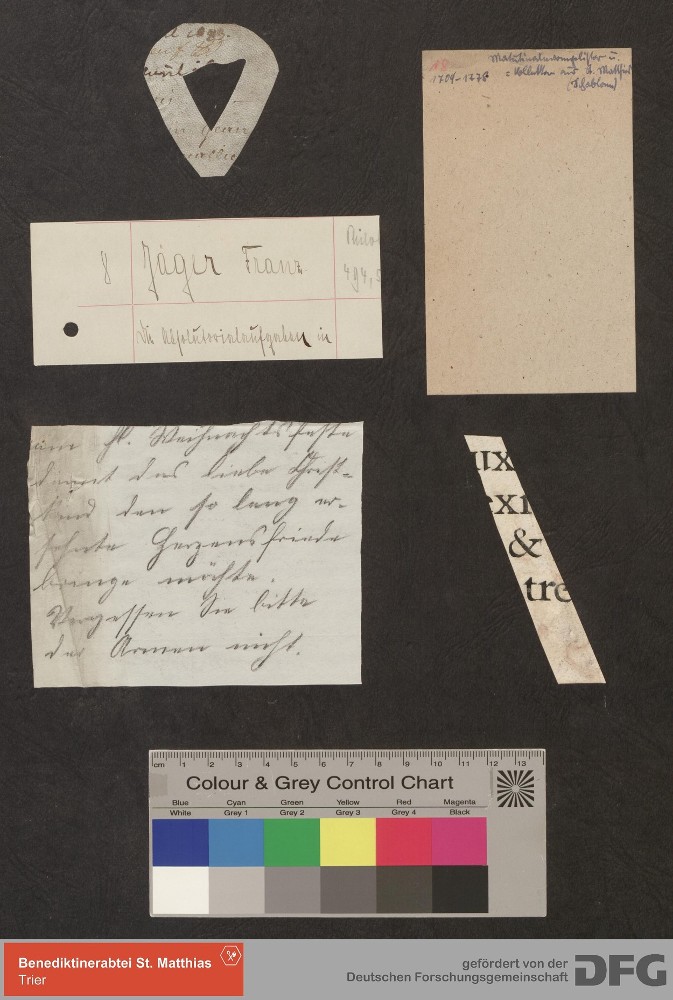 18
1709-1778
Matutinalevangelistar u.
= Kollektar aus St. Matthias
(Schablone)
8
Jäger Franz
494,
Die Absolutorialaufgaben in
am hl. Weihnachtsfeste
damit das liebe Christ-
kind den so lang er-
sehnte Herzensfriede
bringe möchte.
Vergessen Sie bitte
der Armen nicht.
ux
xi
&
tre
cm 1 2 3 4 5 6 7 8 9 10 11 12 13
Colour & Grey Control Chart
Blue Cyan Green Yellow Red Magenta
White Grey 1 Grey 2 Grey 3 Grey 4 Black
Benediktinerabtei St. Matthias
Trier
gefördert von der
Deutschen Forschungsgemeinschaft
DFG